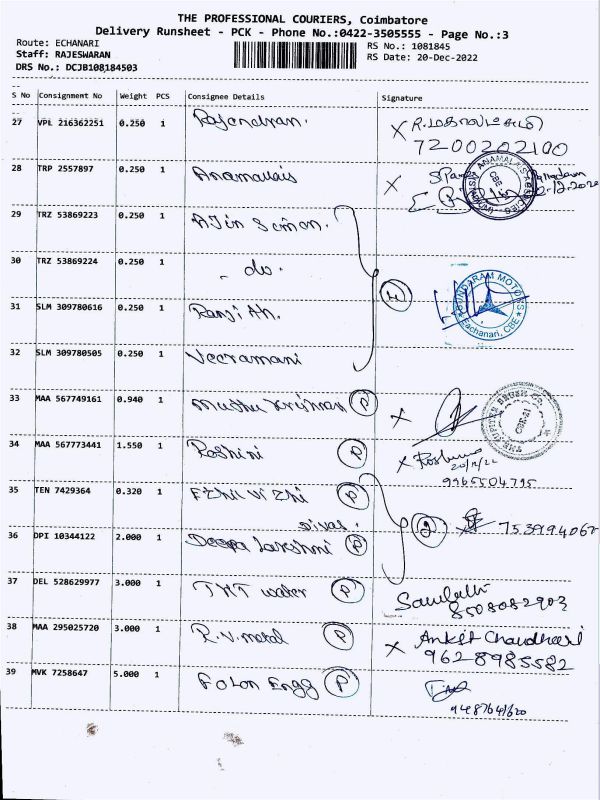 THE PROFESSIONAL COURIERS, Coimbatore
Delivery Runsheet - PCK - Phone No.:0422-3505555 - Page No.:3
Route: ECHANARI
RS No.: 1081845
Staff: RAJESWARAN
RS Date: 20-Dec-2022
DRS No.: DCJB108184503
S No Consignment No Weight PCS Consignee Details Signature
27 VPL 216362251 0.250 1 Rajendran. X R. மகாலட்சுமி
7200202100
28 TRP 2557897 0.250 1 Anamallais X
ANAMALLAIS AGENCIES
CBE
29 TRZ 53869223 0.250 1 AJin Simon.
30 TRZ 53869224 0.250 1 - do. 4
SUNDARAM MOTORS
Eachanari, CBE
31 SLM 309780616 0.250 1 Ranjith.
32 SLM 309780505 0.250 1 Veeramani
33 MAA 567749161 0.940 1 Muthu Krishnan P X
34 MAA 567773441 1.550 1 Roshini P X Roshini
20/12/22
9965504795
35 TEN 7429364 0.320 1 Ezhil Vizhi P
2 7539194062
36 DPI 10344122 2.000 1 Deepa Lakshmi P
37 DEL 528629977 3.000 1 TNT water P
8508082903
38 MAA 295025720 3.000 1 R.V. metal P X Ankit Chaudhari
9628985582
39 MVK 7258647 5.000 1 Folon Engg P